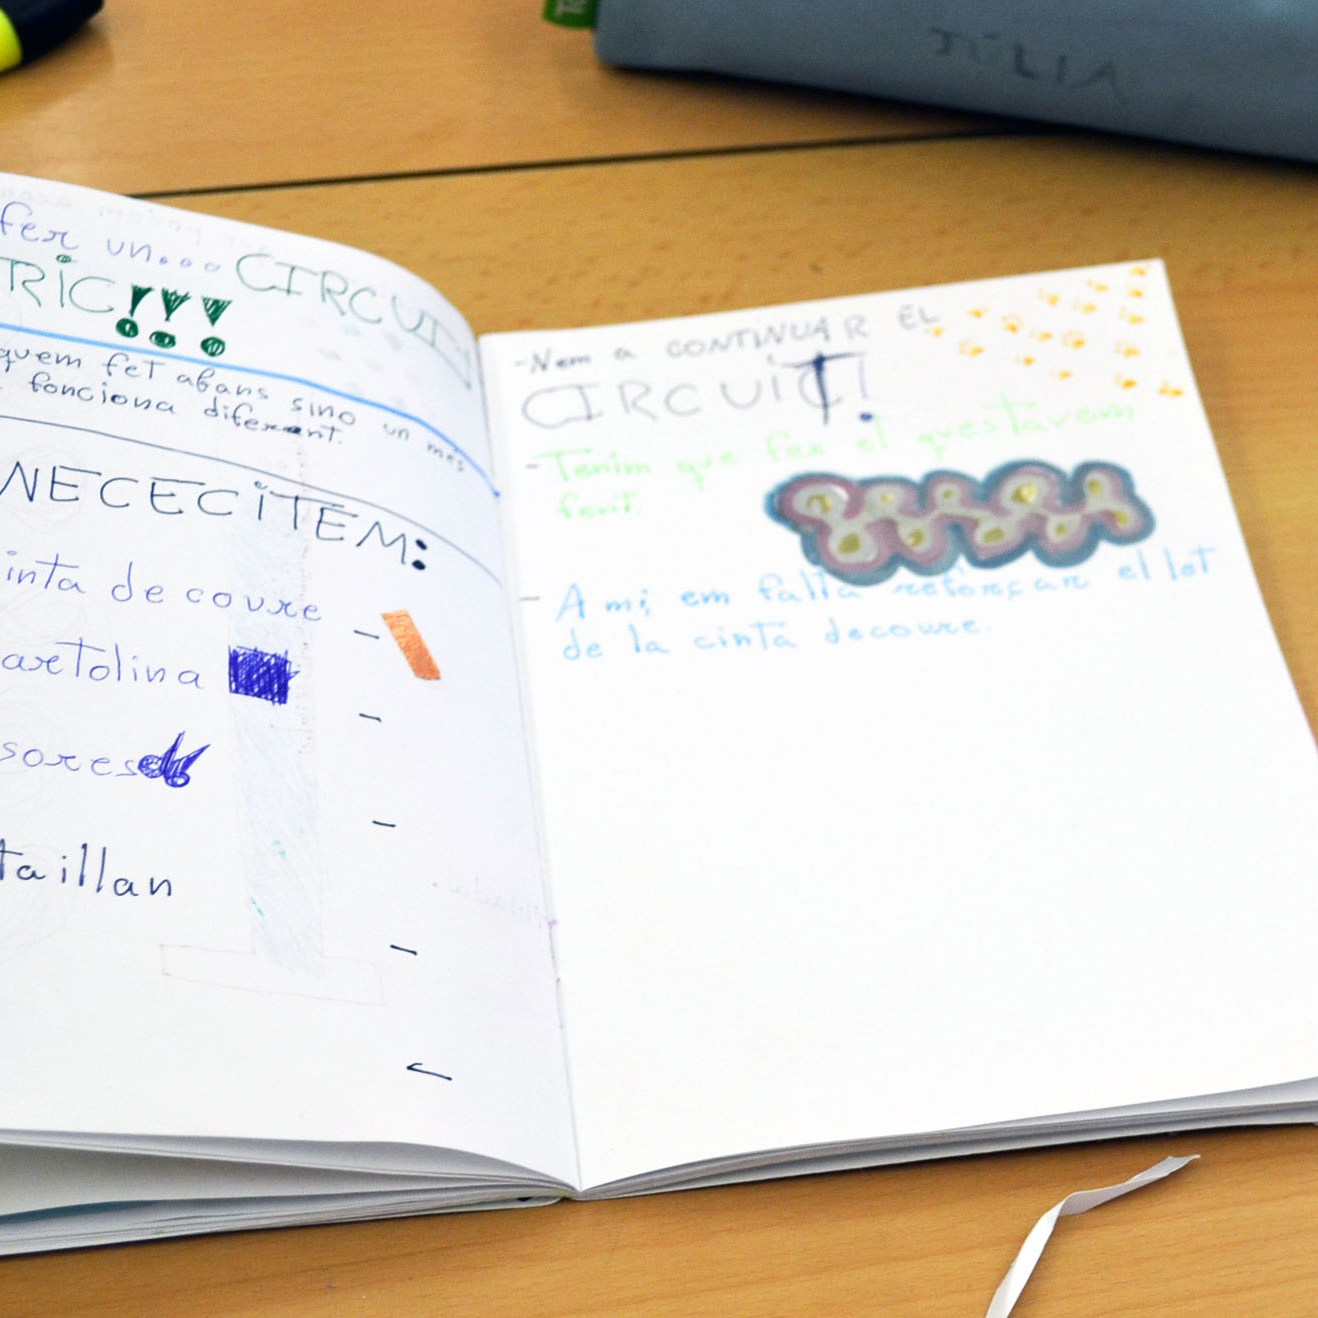 JÚLIA
fer un... CIRCUIT
TRIC!!!
quem fet abans sino un mes
fonciona diferent.
NECECITEM:
inta de coure
artolina
sores
taillan
-Nem a CONTINUAR EL
CIRCUIT!
-Tenim que fer el questavem
fent.
- A mi, em falta reforçar el lot
de la cinta decoure.